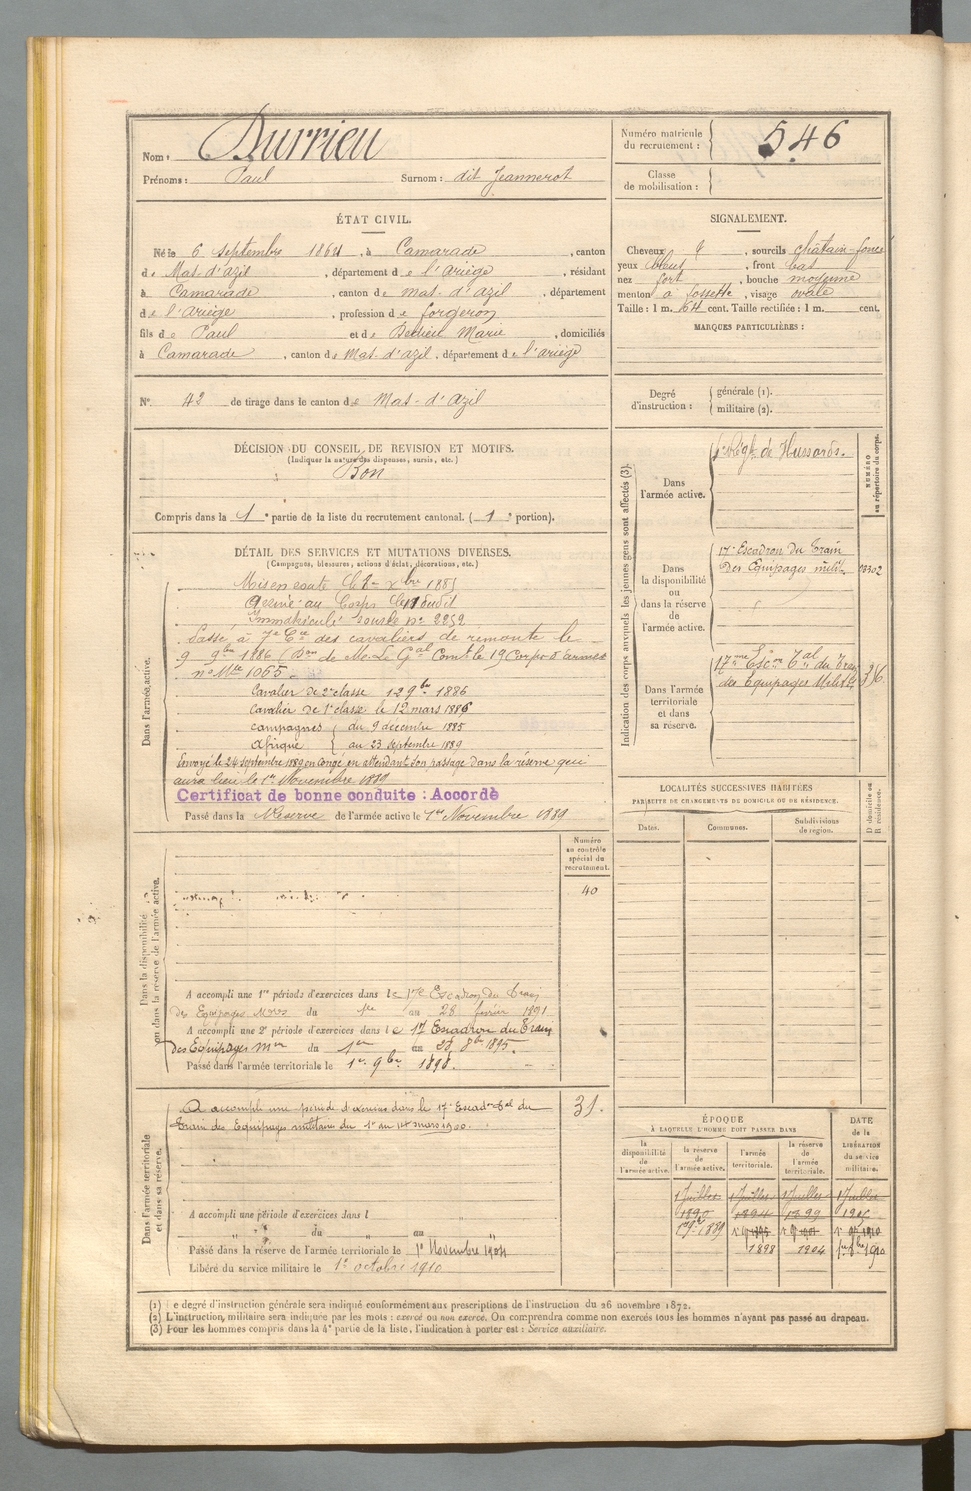 Nom : Durrieu
Prénoms : Paul Surnom : dit Jeannerot
Numéro matricule du recrutement : 546
Classe de mobilisation :
ÉTAT CIVIL.
Né le 6 septembre 1864, à Camarade, canton
de Mas-d'azil, département de l'Ariège, résidant
à Camarade, canton de Mas-d'azil, département
de l'ariège, profession de forgeron
fils de Paul et de Marie, domiciliés
à Camarade, canton de Mas-d'azil, département de l'ariège
SIGNALEMENT.
Cheveux, sourcils châtain-foncé
yeux bleus, front bas
nez fort, bouche moyenne
menton à fossette, visage ovale
Taille : 1 m. 64 cent. Taille rectifiée : 1 m. cent.
MARQUES PARTICULIÈRES :
N° 42 de tirage dans le canton de Mas-d'Azil
Degré d'instruction :
générale (1).
militaire (2).
DÉCISION DU CONSEIL DE REVISION ET MOTIFS.
(Indiquer la nature des dispenses, sursis, etc.)
Bon
Compris dans la 1e partie de la liste du recrutement cantonal. (1e portion).
DÉTAIL DES SERVICES ET MUTATIONS DIVERSES.
(Campagnes, blessures, actions d'éclat, décorations, etc.)
Dans l'armée active.
Mis en route le 8 Xbre 1885
Arrivé au Corps le dudit
Immatriculé sous le n° 2252
Passé à 7e Cie des cavaliers de remonte le
9 9bre 1886 (Don de M. Le Gal Comt le 19 Corps d'Armée
n° Mle 1065
Cavalier de 2e classe 12 9bre 1886
Cavalier de 1e classe le 12 mars 1886
campagnes du 9 décembre 1885
Afrique au 23 septembre 1889
Envoyé le 24 septembre 1889 en congé en attendant son passage dans la réserve qui
aura lieu le 1er Novembre 1889
Certificat de bonne conduite : Accordé
Passé dans la Réserve de l'armée active le 1er Novembre 1889
Indication des corps auxquels les jeunes gens sont affectés (3).
NUMÉRO au répertoire du corps.
Dans l'armée active.
1er Régt de Hussards.
Dans la disponibilité ou dans la réserve de l'armée active.
17e Escadron du Train
des Equipages milit.
Dans l'armée territoriale et dans sa réserve.
17me Escon Tal du Train
des Equipages Milit.
LOCALITÉS SUCCESSIVES HABITÉES
PAR SUITE DE CHANGEMENTS DE DOMICILE OU DE RÉSIDENCE.
Dates.
Communes.
Subdivisions de région.
D domicile ou R résidence.
Dans la disponibilité ou dans la réserve de l'armée active.
Numéro au contrôle spécial de recrutement.
40
A accompli une 1re période d'exercices dans le 17e Escadron du Train
des Equipages du 1er au 28 février 1891
A accompli une 2e période d'exercices dans le 17 Escadron du Train
des Equipages du 1er au 28 8bre 1895.
Passé dans l'armée territoriale le 1er 9bre 1898.
Dans l'armée territoriale et dans sa réserve.
A accompli une période d'exercices dans le 17e Escadon Tal du
Train des Equipages militaires du 1er au 14 mars 1900.
31.
A accompli une période d'exercices dans l
du au
Passé dans la réserve de l'armée territoriale le 1er Novembre 1904
Libéré du service militaire le 1er octobre 1910
ÉPOQUE
À LAQUELLE L'HOMME DOIT PASSER DANS
la disponibilité de l'armée active.
la réserve de l'armée active.
l'armée territoriale.
la réserve de l'armée territoriale.
DATE de la LIBÉRATION du service militaire.
1 Juillet 1 Juillet 1 Juillet 1 Juillet
1890 1894 1899 1905
1 9bre 1889
1898 1904 1910
(1) Le degré d'instruction générale sera indiqué conformément aux prescriptions de l'instruction du 26 novembre 1872.
(2) L'instruction militaire sera indiquée par les mots : exercé ou non exercé. On comprendra comme non exercés tous les hommes n'ayant pas passé au drapeau.
(3) Pour les hommes compris dans la 4e partie de la liste, l'indication à porter est : Service auxiliaire.